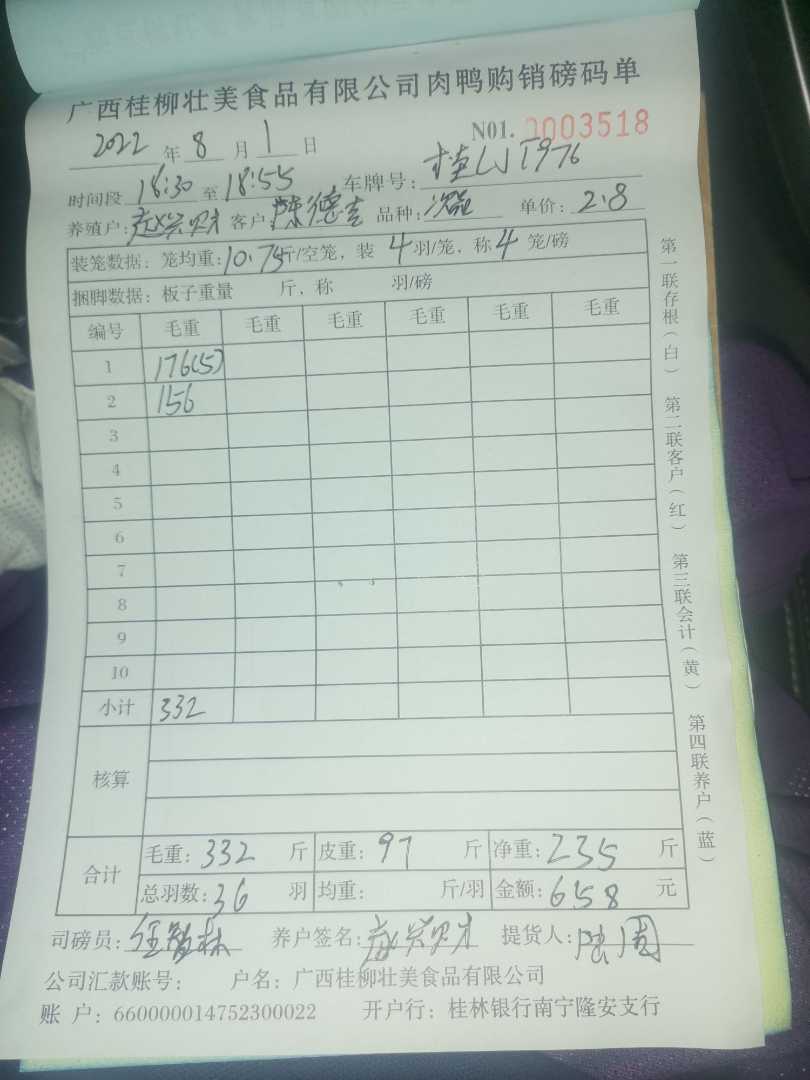 广西桂柳壮美食品有限公司肉鸭购销磅码单
2022年8月1日 N01. 0003518
时间段18:30至18:55 车牌号:桂LJT976
养殖户:赵兴财 客户陈德 品种: 单价:2.8
装笼数据:笼均重:10.75斤/空笼,装4羽/笼,称4笼/磅
捆脚数据:板子重量 斤,称 羽/磅
编号 毛重 毛重 毛重 毛重 毛重 毛重
1 176(5)
2 156
3
4
5
6
7
8
9
10
小计 332
核算
合计 毛重:332斤 皮重:97斤 净重:235斤
总羽数:36羽 均重: 斤/羽 金额:658元
司磅员:林 养户签名:赵兴财 提货人:陆周
公司汇款账号: 户名:广西桂柳壮美食品有限公司
账 户:660000014752300022 开户行:桂林银行南宁隆安支行
第一联存根(白) 第二联客户(红) 第三联会计(黄) 第四联养户(蓝)